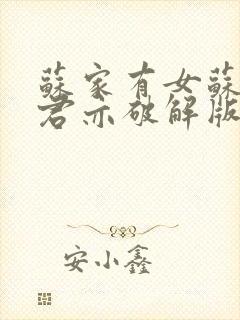 蘇家有女蘇
君亦破解版
安小鑫